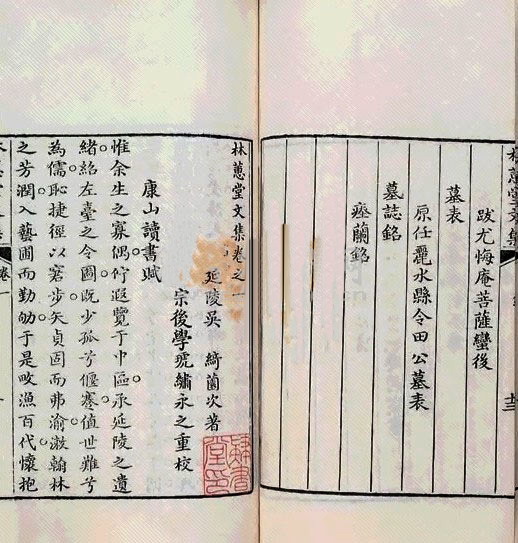 跋尤悔庵菩薩蠻後
墓表
原任麗水縣令田公墓表
墓誌銘
瘞蘭銘
林蕙堂文集卷之一
延陵吳 綺薗次著
宗後學琥繡永之重校
康山讀書賦
惟余生之寡偶佇遐覽于中區承延陵之遺
緒紹左臺之令圖既少孤兮偃蹇值世難兮
為儒恥捷徑以窘步矢貞固而弗渝漱翰林
之芳潤入藝圃而勤劬于是畋漁百代懷抱
卷一